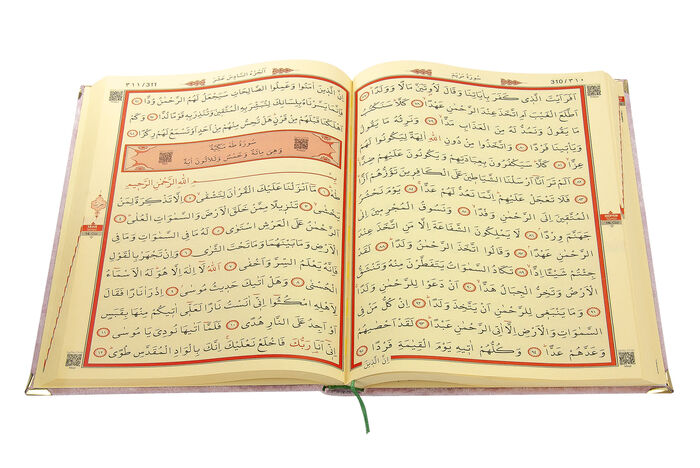 310/٣١٠ سُورَةُ مَرْيَمَ
اَفَرَاَيْتَ الَّذ۪ي كَفَرَ بِاٰيَاتِنَا وَقَالَ لَاُو۫تَيَنَّ مَالًا وَوَلَدًا ﴿٧٧﴾
اَطَّلَعَ الْغَيْبَ اَمِ اتَّخَذَ عِنْدَ الرَّحْمٰنِ عَهْدًا ﴿٧٨﴾ كَلَّا سَنَكْتُبُ
مَا يَقُولُ وَنَمُدُّ لَهُ مِنَ الْعَذَابِ مَدًّا ﴿٧٩﴾ وَنَرِثُهُ مَا يَقُولُ
وَيَأْت۪ينَا فَرْدًا ﴿٨٠﴾ وَاتَّخَذُوا مِنْ دُونِ اللّٰهِ اٰلِهَةً لِيَكُونُوا لَهُمْ
عِزًّا ﴿٨١﴾ كَلَّا سَيَكْفُرُونَ بِعِبَادَتِهِمْ وَيَكُونُونَ عَلَيْهِمْ ضِدًّا ﴿٨٢﴾
اَلَمْ تَرَ اَنَّا اَرْسَلْنَا الشَّيَاط۪ينَ عَلَى الْكَافِر۪ينَ تَؤُزُّهُمْ اَزًّا ﴿٨٣﴾
فَلَا تَعْجَلْ عَلَيْهِمْ اِنَّمَا نَعُدُّ لَهُمْ عَدًّا ﴿٨٤﴾ يَوْمَ نَحْشُرُ
الْمُتَّق۪ينَ اِلَى الرَّحْمٰنِ وَفْدًا ﴿٨٥﴾ وَنَسُوقُ الْمُجْرِم۪ينَ اِلٰى
جَهَنَّمَ وِرْدًا ﴿٨٦﴾ لَا يَمْلِكُونَ الشَّفَاعَةَ اِلَّا مَنِ اتَّخَذَ عِنْدَ
الرَّحْمٰنِ عَهْدًا ﴿٨٧﴾ وَقَالُوا اتَّخَذَ الرَّحْمٰنُ وَلَدًا ﴿٨٨﴾ لَقَدْ
جِئْتُمْ شَيْـًٔا اِدًّا ﴿٨٩﴾ تَكَادُ السَّمٰوَاتُ يَتَفَطَّرْنَ مِنْهُ وَتَنْشَقُّ
الْاَرْضُ وَتَخِرُّ الْجِبَالُ هَدًّا ﴿٩٠﴾ اَنْ دَعَوْا لِلرَّحْمٰنِ وَلَدًا ﴿٩١﴾
وَمَا يَنْبَغ۪ي لِلرَّحْمٰنِ اَنْ يَتَّخِذَ وَلَدًا ﴿٩٢﴾ اِنْ كُلُّ مَنْ فِي
السَّمٰوَاتِ وَالْاَرْضِ اِلَّٓا اٰتِي الرَّحْمٰنِ عَبْدًا ﴿٩٣﴾ لَقَدْ اَحْصٰيهُمْ
وَعَدَّهُمْ عَدًّا ﴿٩٤﴾ وَكُلُّهُمْ اٰت۪يهِ يَوْمَ الْقِيٰمَةِ فَرْدًا ﴿٩٥﴾
اِنَّ الَّذ۪ينَ
اَلْجُزْءُ السَّادِسُ عَشَرَ ٣١١/311
اِنَّ الَّذ۪ينَ اٰمَنُوا وَعَمِلُوا الصَّالِحَاتِ سَيَجْعَلُ لَهُمُ الرَّحْمٰنُ وُدًّا ﴿٩٦﴾
فَاِنَّمَا يَسَّرْنَاهُ بِلِسَانِكَ لِتُبَشِّرَ بِهِ الْمُتَّق۪ينَ وَتُنْذِرَ بِه۪ قَوْمًا لُدًّا ﴿٩٧﴾ وَكَمْ
اَهْلَكْنَا قَبْلَهُمْ مِنْ قَرْنٍ هَلْ تُحِسُّ مِنْهُمْ مِنْ اَحَدٍ اَوْ تَسْمَعُ لَهُمْ رِكْزًا ﴿٩٨﴾
سُورَةُ طٰهٰ مَكِّيَّةٌ
وَهِيَ مِائَةٌ وَخَمْسٌ وَثَلَاثُونَ اٰيَةً
بِسْمِ اللّٰهِ الرَّحْمٰنِ الرَّح۪يمِ
طٰهٰ ﴿١﴾ مَٓا اَنْزَلْنَا عَلَيْكَ الْقُرْاٰنَ لِتَشْقٰى ﴿٢﴾ اِلَّا تَذْكِرَةً لِمَنْ
يَخْشٰى ﴿٣﴾ تَنْز۪يلًا مِمَّنْ خَلَقَ الْاَرْضَ وَالسَّمٰوَاتِ الْعُلٰى ﴿٤﴾
اَلرَّحْمٰنُ عَلَى الْعَرْشِ اسْتَوٰى ﴿٥﴾ لَهُ مَا فِي السَّمٰوَاتِ وَمَا فِي
الْاَرْضِ وَمَا بَيْنَهُمَا وَمَا تَحْتَ الثَّرٰى ﴿٦﴾ وَاِنْ تَجْهَرْ بِالْقَوْلِ
فَاِنَّهُ يَعْلَمُ السِّرَّ وَاَخْفٰى ﴿٧﴾ اَللّٰهُ لَٓا اِلٰهَ اِلَّا هُوَ لَهُ الْاَسْمَٓاءُ
الْحُسْنٰى ﴿٨﴾ وَهَلْ اَتٰيكَ حَد۪يثُ مُوسٰى ﴿٩﴾ اِذْ رَاٰ نَارًا فَقَالَ
لِاَهْلِهِ امْكُثُٓوا اِنّ۪ٓي اٰنَسْتُ نَارًا لَعَلّ۪ٓي اٰت۪يكُمْ مِنْهَا بِقَبَسٍ
اَوْ اَجِدُ عَلَى النَّارِ هُدًى ﴿١٠﴾ فَلَمَّٓا اَتٰيهَا نُودِيَ يَا مُوسٰى ﴿١١﴾
اِنّ۪ٓي اَنَا۬ رَبُّكَ فَاخْلَعْ نَعْلَيْكَ اِنَّكَ بِالْوَادِ الْمُقَدَّسِ طُوًى ﴿١٢﴾